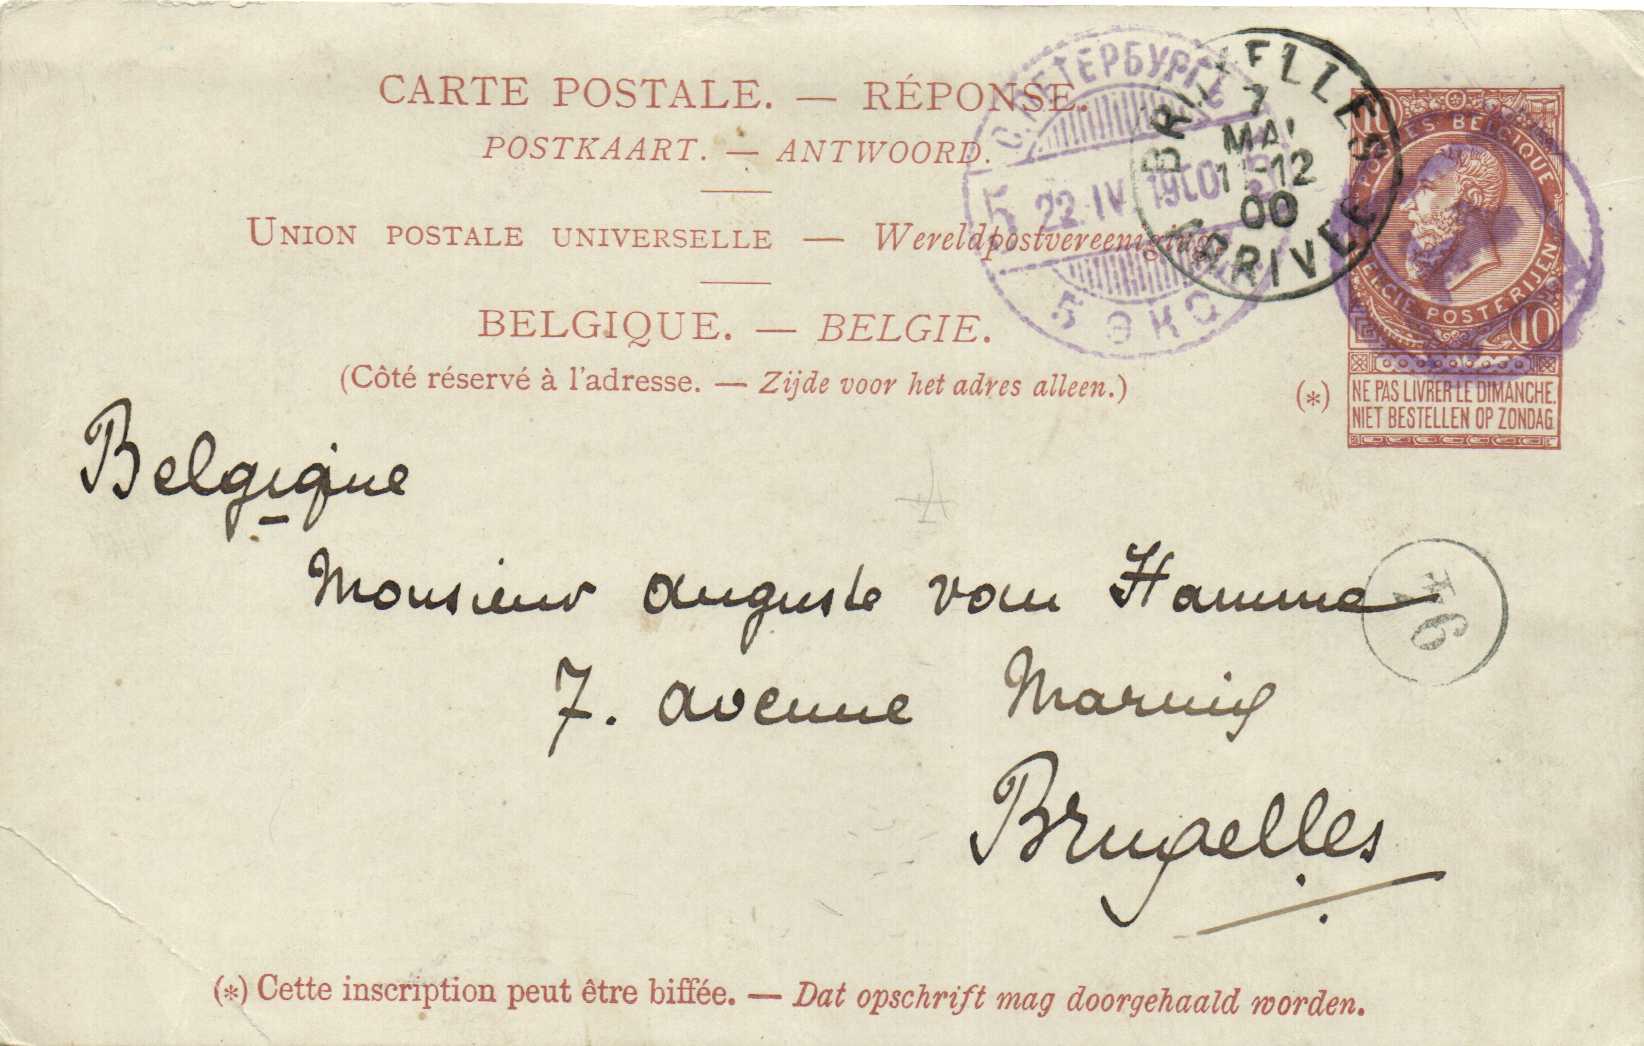 CARTE POSTALE. — RÉPONSE.
POSTKAART. — ANTWOORD.
UNION POSTALE UNIVERSELLE — Wereldpostvereeniging.
BELGIQUE. — BELGIE.
(Côté réservé à l'adresse. — Zijde voor het adres alleen.)
С.ПЕТЕРБУРГЪ
5 22.IV.1900
5 ЭКС
BRUXELLES
7
MAI
11-12
00
ARRIVEE
POSTES BELGIQUE
BELGIE POSTERIJEN
10
(*)
NE PAS LIVRER LE DIMANCHE.
NIET BESTELLEN OP ZONDAG.
Belgique
Monsieur Auguste van Hamme
7. avenue Marnix
Bruxelles
(*) Cette inscription peut être biffée. — Dat opschrift mag doorgehaald worden.